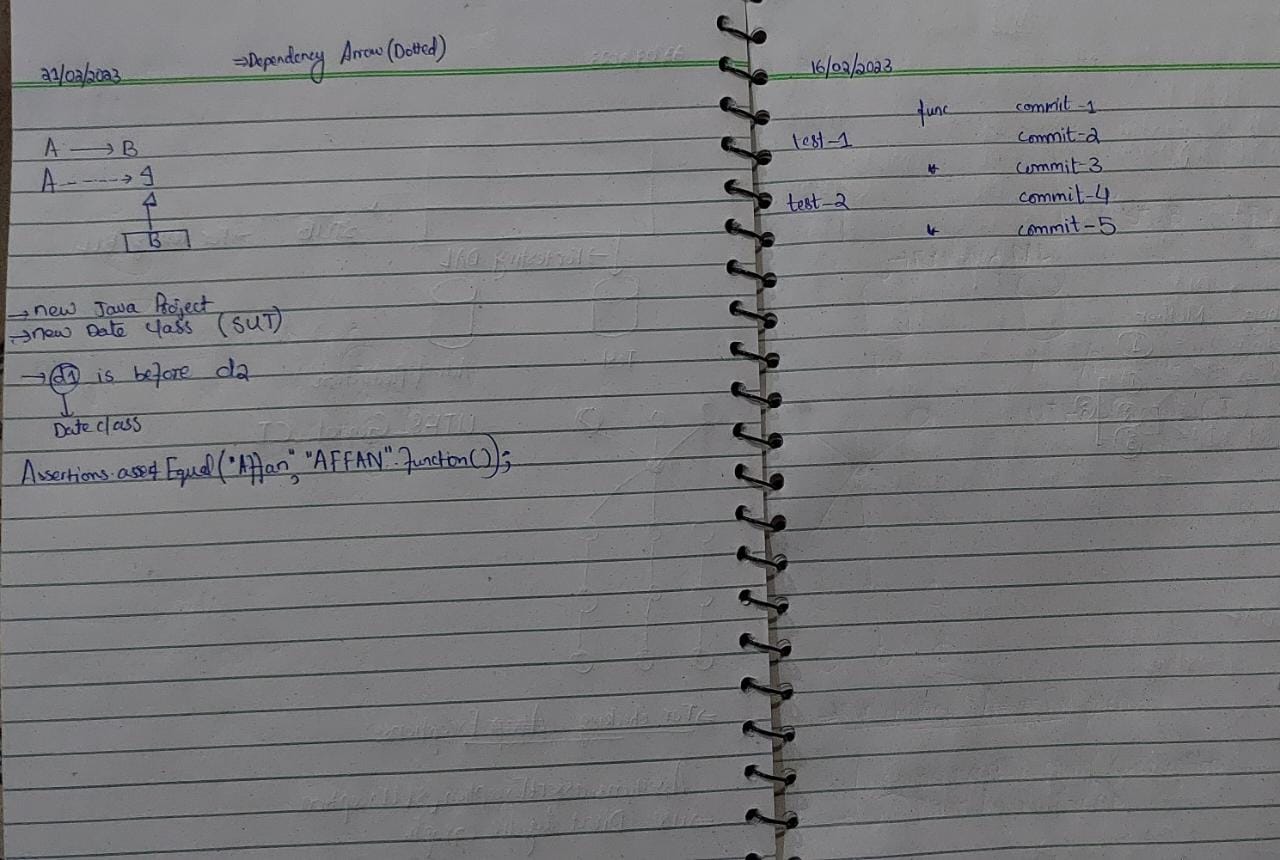 ⇒Dependency Arrow (Dotted)
21/02/2023
A → B
A ----→ I
B
→ new Java Project
→ new Date Class (SUT)
→ d1 is before d2
Date class
Assertions.assertEqual("Affan", "AFFAN".function());
16/02/2023
func commit-1
test-1 commit-2
" commit-3
test-2 commit-4
" commit-5